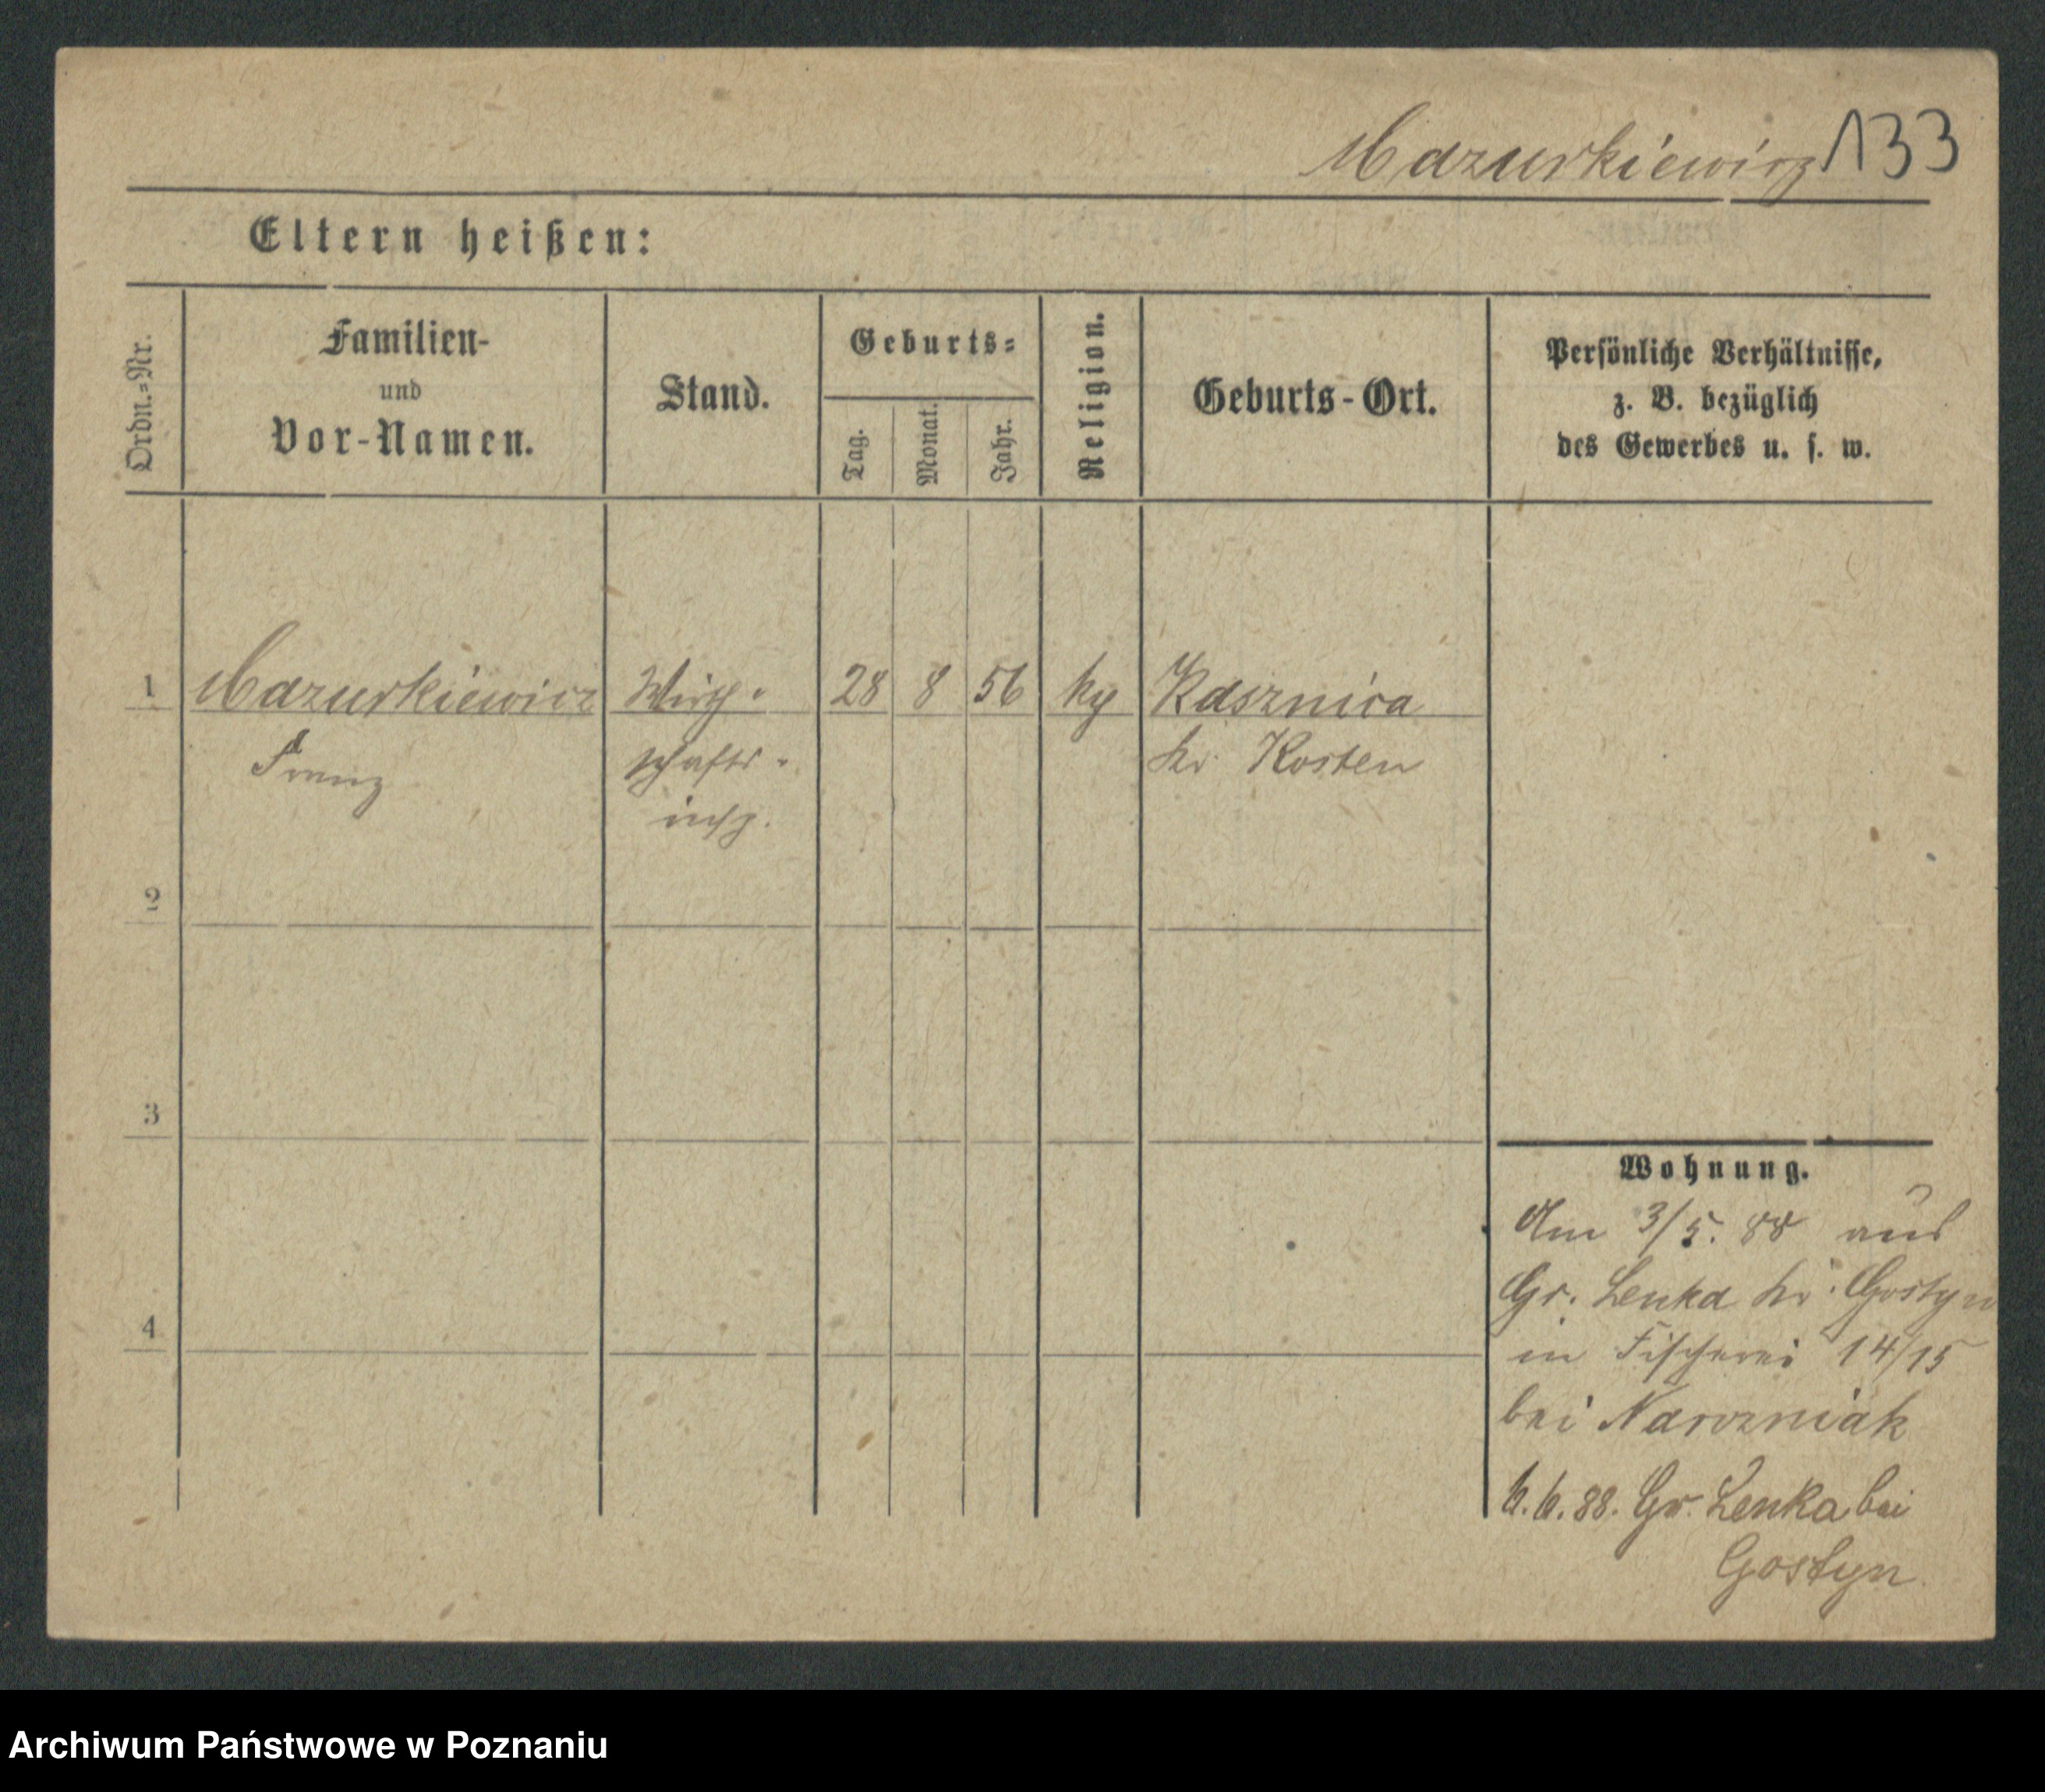 Mazurkiewicz 133
Eltern heißen:
Ordn.-Nr.
Familien-
und
Vor-Namen.
Stand.
Geburts-
Tag.
Monat.
Jahr.
Religion.
Geburts-Ort.
Persönliche Verhältnisse,
z. B. bezüglich
des Gewerbes u. s. w.
1 Mazurkiewicz Wirth- 28 8 56 Kasznica
Franz schafts- Kr. Kosten
insp.
2
3
4
Wohnung.
Am 3/5. 88 aus
Gr. Lenka Kr. Gostyn
in Fischerei 14/15
bei Narozniak
6.6.88. Gr. Lenka bei
Gostyn
Archiwum Państwowe w Poznaniu